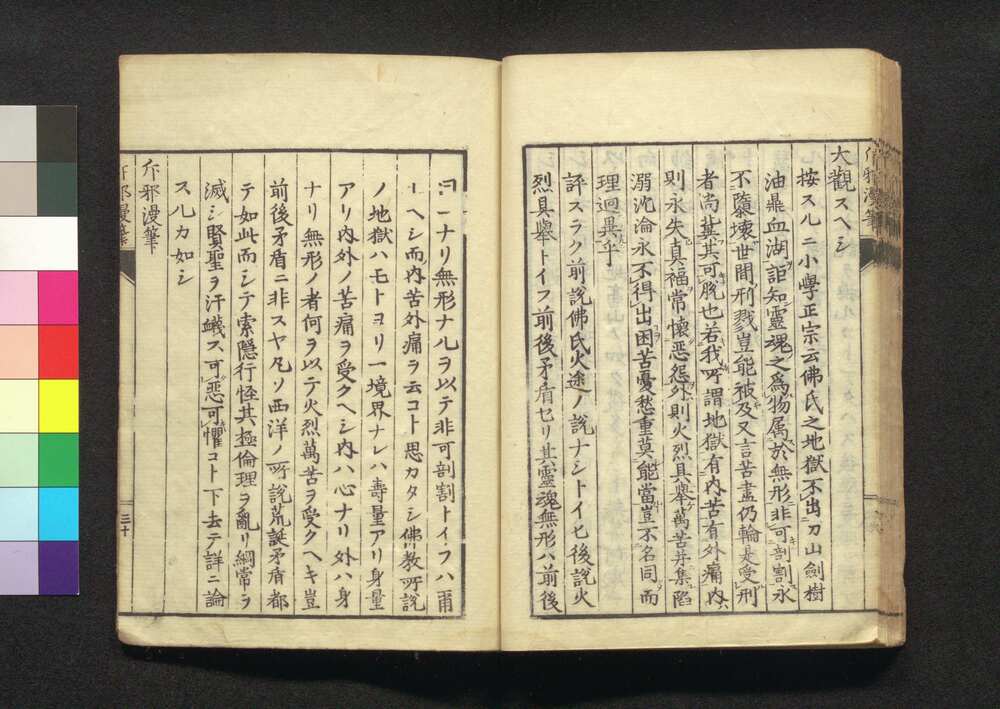 大觀スヘシ
按スルニ小學正宗云佛氏之地獄不出刀山劍樹
油鼎血湖詎知靈魂之爲物属於無形非可剖割永
不隳壞世間刑戮豈能被及又言苦盡仍輪是受刑
者尚冀其可脫也若我所謂地獄有內苦有外痛內
則永失真福常懷惡怨外則火烈具舉萬苦并集陷
溺沈淪永不得出困苦憂愁重莫能當豈不名同而
理迥異乎
評スラク前說佛氏火途ノ說ナシトイヒ後說火
烈具舉トイフ前後矛盾セリ其靈魂無形ハ前後
一ナリ無形ナルヲ以テ非可剖割トイフハ爾
ヘシ而內苦外痛ヲ云コト思カタシ佛教所說
ノ地獄ハモトヨリ一境界ナレハ壽量アリ身量
アリ內外ノ苦痛ヲ受クヘシ內ハ心ナリ外ハ身
ナリ無形ノ者何ヲ以テ火烈萬苦ヲ受クヘキ豈
前後矛盾ニ非スヤ凡ソ西洋ノ所說荒誕矛盾都
テ如此而シテ索隱行怪其極倫理ヲ亂リ綱常ヲ
滅シ賢聖ヲ汗衊ス可惡可懼コト下去テ詳ニ論
スルカ如シ
斥邪漫筆
斥邪漫筆
三十